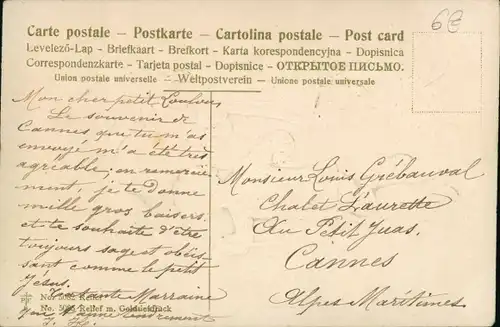 Carte postale — Postkarte — Cartolina postale — Post card
Levelező-Lap - Briefkaart - Brefkort - Karta korespondencyjna - Dopisnica
Correspondenzkarte - Tarjeta postal - Dopisnice - ОТКРЫТОЕ ПИСЬМО.
Union postale universelle — Weltpostverein — Unione postale universale
6€
Mon cher petit Loulou
Le souvenir de
Cannes que tu m'as
envoyé m'a été très
agréable; en remercie
ment, je te donne
mille gros baisers
et te souhaite d'être
toujours sage et obéis
sant comme le petit
Jésus.
Ta tante Marraine
qui t'aime tendrement
Monsieur Louis Grébauval
Chalet Laurette
Au Petit Juas.
Cannes
Alpes Maritimes
No. Relief
No. Relief m. Golddruck